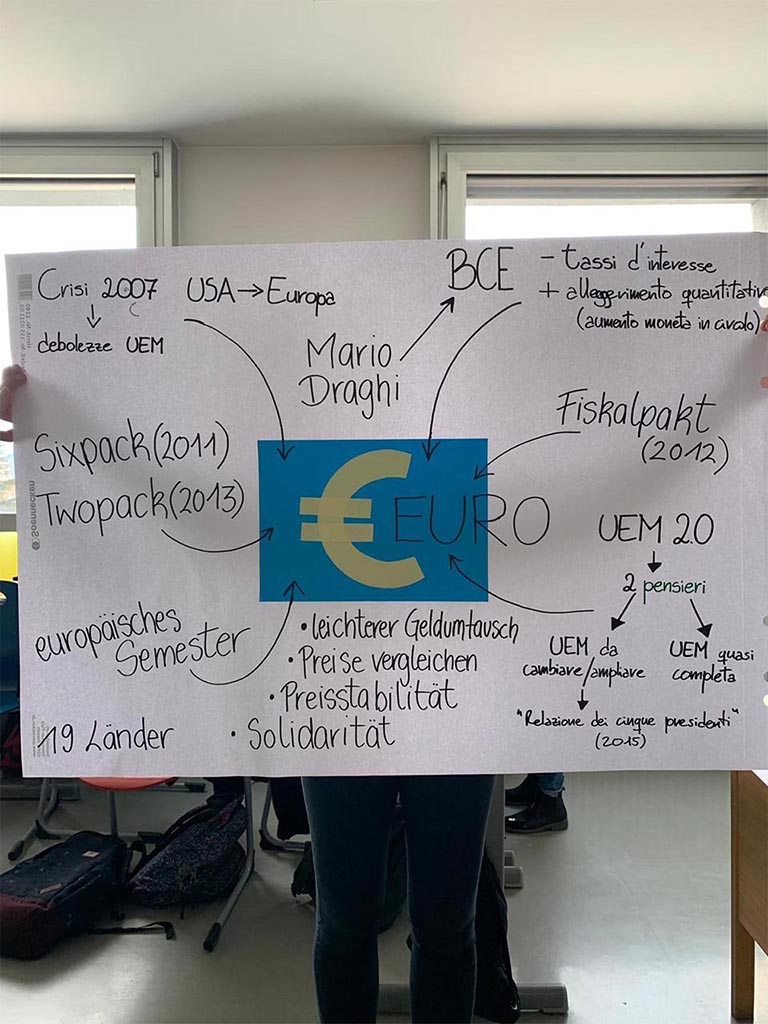 Crisi 2007 USA→Europa
↓
debolezze UEM
Mario
Draghi
BCE
- tassi d'interesse
+ alleggerimento quantitativo
(aumento moneta in circolo)
Sixpack (2011)
Twopack (2013)
Fiskalpakt
(2012)
€ EURO
UEM 2.0
2 pensieri
UEM da
cambiare/ampliare
UEM quasi
completa
"Relazione dei cinque presidenti"
(2015)
europäisches
Semester
• leichterer Geldumtausch
• Preise vergleichen
• Preisstabilität
• Solidarität
19 Länder
Soennecken